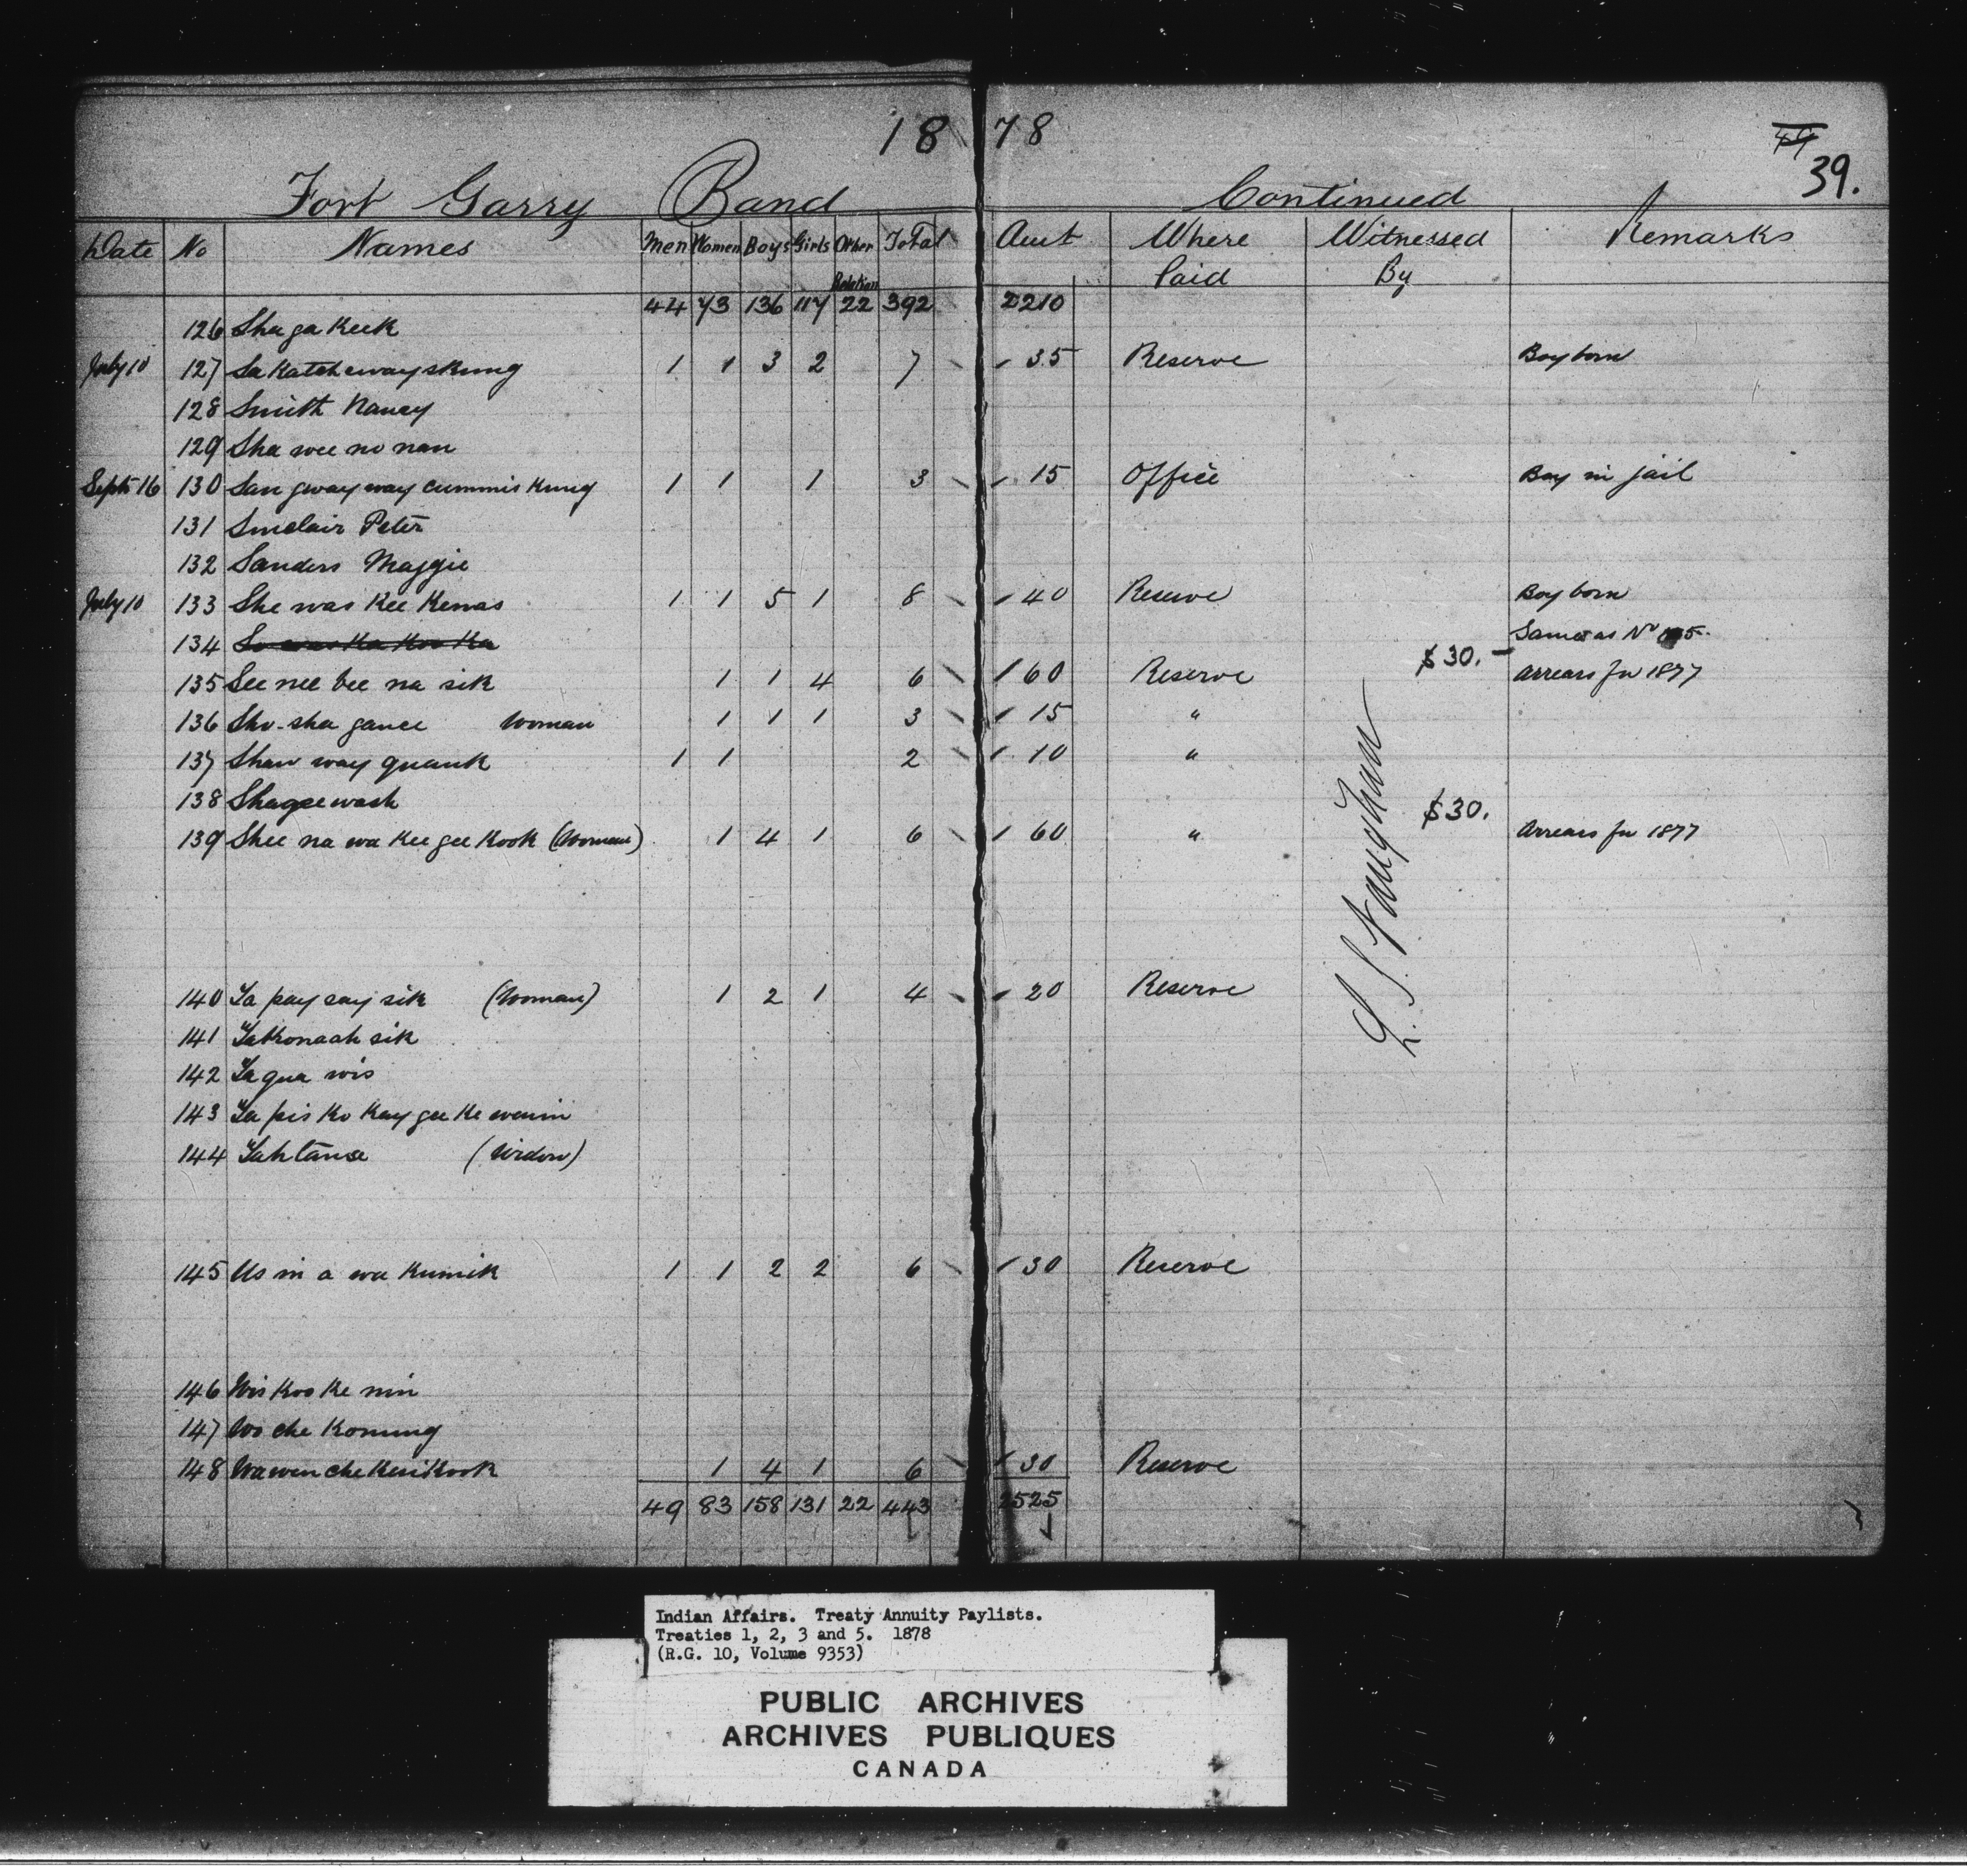 18 78
49
39.
Fort Garry Band Continued
Date No Names Men Women Boys Girls Other Relation Total Amt Where Paid Witnessed By Remarks
44 73 136 117 22 392 2210
126 Sha ga keek
July 10 127 Sa katchewayskung 1 1 3 2 7 35 Reserve Boy born
128 Smith Nancy
129 Sha wee no nan
Sept 16 130 San gway way cummis kung 1 1 1 3 15 Office Boy in jail
131 Sinclair Peter
132 Sanders Maggie
July 10 133 She was kee kenas 1 1 5 1 8 40 Reserve Boy born
134 Same as No
135 See nee bee na sik 1 1 4 6 60 Reserve $30.- Arrears for 1877
136 Sho-sha gance Woman 1 1 1 3 15 "
137 Shaw way quank 1 1 2 10 "
138 Shageewash
139 Shee na wa kee gee kook (Woman) 1 4 1 6 60 " $30. Arrears for 1877
L. S. Vaughan
140 Ta pay say sik (Woman) 1 2 1 4 20 Reserve
141 Tabronash sik
142 Ta qua wis
143 Ta pis ko kay gee ke wenin
144 Tahtanse (Widow)
145 Us in a wa kumik 1 1 2 2 6 30 Reserve
146 Wis koo ke nin
147 Wo che koming
148 Wawenchekesikook 1 4 1 6 30 Reserve
49 83 158 131 22 443 2525
Indian Affairs. Treaty Annuity Paylists.
Treaties 1, 2, 3 and 5. 1878
(R.G. 10, Volume 9353)
PUBLIC ARCHIVES
ARCHIVES PUBLIQUES
CANADA